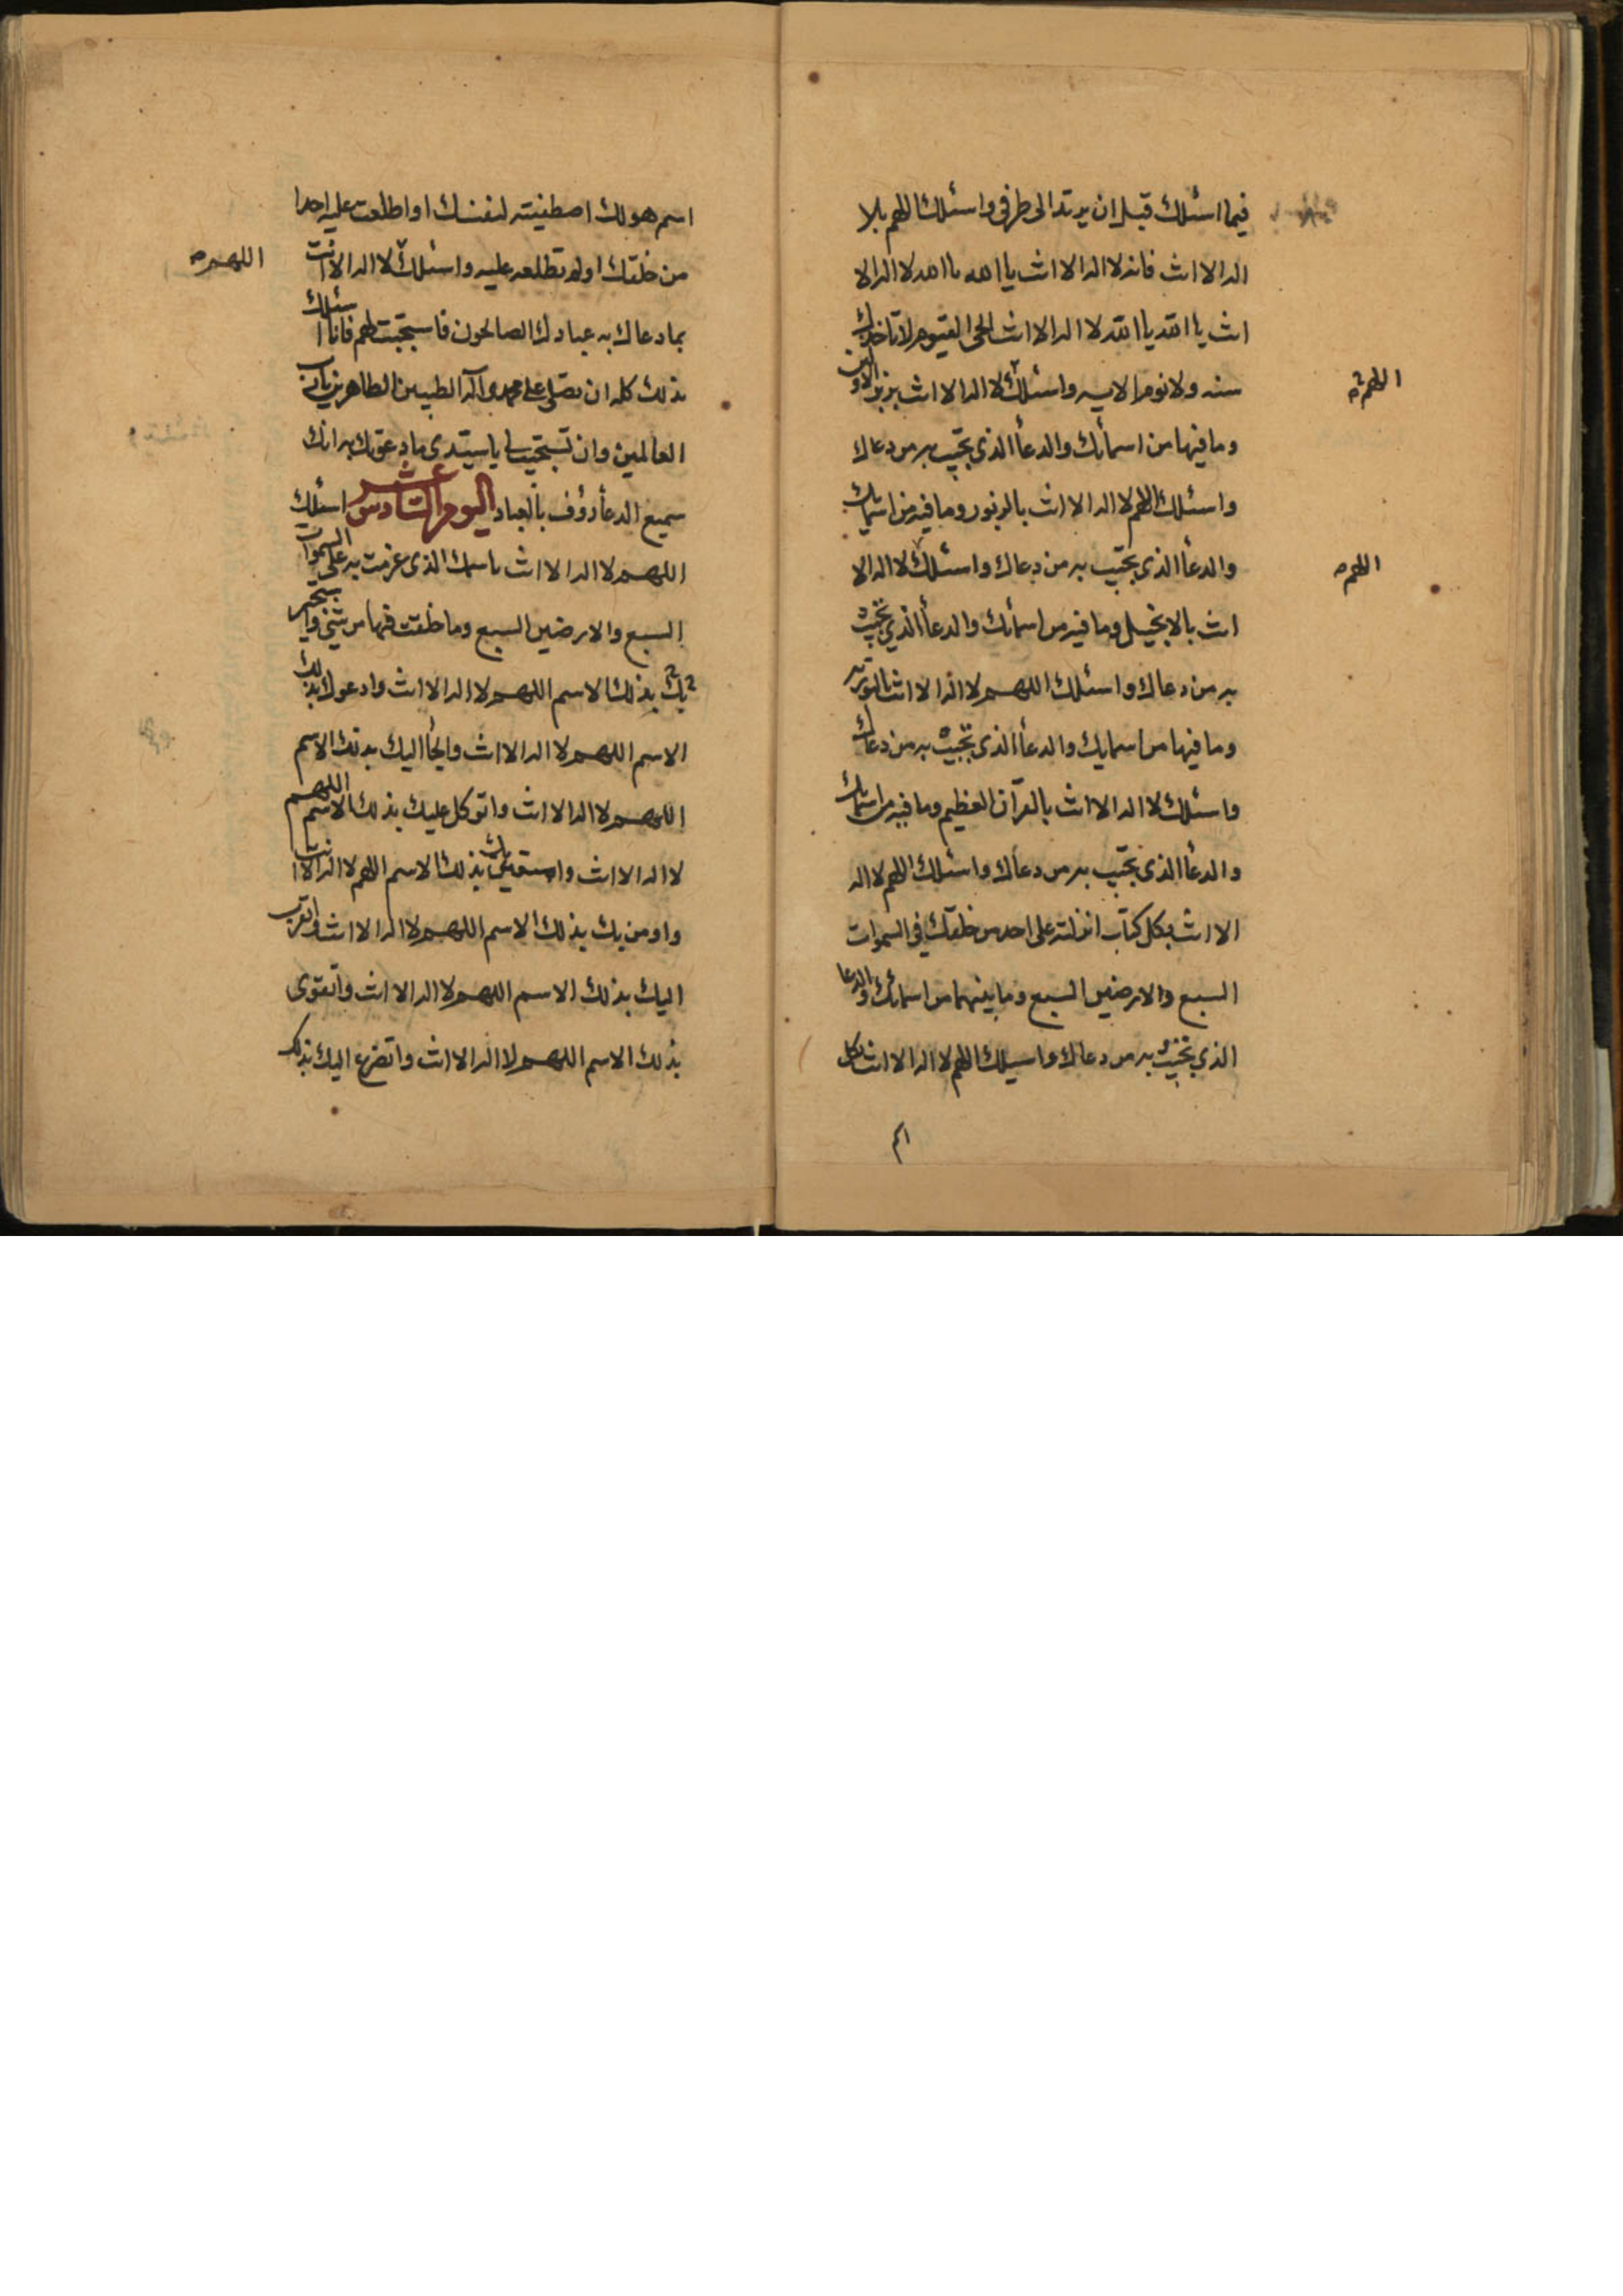 فيما اسئلك قبل ان يرتد الى طرفى واسئلك اللهم بلا
اله الا انت فانه لا اله الا انت يا الله يا الله لا اله الا
انت يا الله يا الله لا اله الا انت الحى القيوم لا تاخذك
سنه ولا نوم الايه واسئلك لا اله الا انت بزبر الاولين
اللهم
وما فيها من اسمائك والدعأ الذى تجيب به من دعاك
واسئلك اللهم لا اله الا انت بالزبور وما فيه من اسمائك
والدعأ الذى تجيب به من دعاك واسئلك لا اله الا
اللهم
انت بالانجيل وما فيه من اسمائك والدعأ الذي تجيب
به من دعاك واسئلك اللهم لا اله الا انت بالتورية
وما فيها من اسمايك والدعأ الذى تجيب به من دعاك
واسئلك لا اله الا انت بالقرآن العظيم وما فيه من اسمائك
والدعأ الذى تجيب به من دعاك واسئلك اللهم لا اله
الا انت بكل كتاب انزلته على احد من خلقك فى السموات
السبع والارضين السبع وما بينهما من اسمائك والدعا
الذي تجيب به من دعاك واسيلك اللهم لا اله الا انت بكل
اسم هو لك اصطفيته لنفسك او اطلعت عليه احدا
من خلقك او لم تطلعه عليه واسئلك لا اله الا انت
اللهم
بما دعاك به عبادك الصالحون فاستجبت لهم فانا اسئلك
بذلك كله ان تصلى على محمد وآله الطيبين الطاهرين يا رب
العالمين وان تستجيب لى يا سيدى ما دعوتك به انك
سميع الدعأ رؤف بالعباد اليوم السادس عشر اسئلك
اللهم لا اله الا انت باسمك الذى عزمت به على السموات
السبع والارضين السبع وما خلقت فيها من شئ واستجير
بك بذلك الاسم اللهم لا اله الا انت وادعوك بذلك
الاسم اللهم لا اله الا انت والجأ اليك بذلك الاسم
اللهم لا اله الا انت واتوكل عليك بذلك الاسم اللهم
لا اله الا انت واستعين بك بذلك الاسم اللهم لا اله الا انت
واومن بك بذلك الاسم اللهم لا اله الا انت واتقرب
اليك بذلك الاسم اللهم لا اله الا انت واتقوى
بذلك الاسم اللهم لا اله الا انت واتضرع اليك بذلك